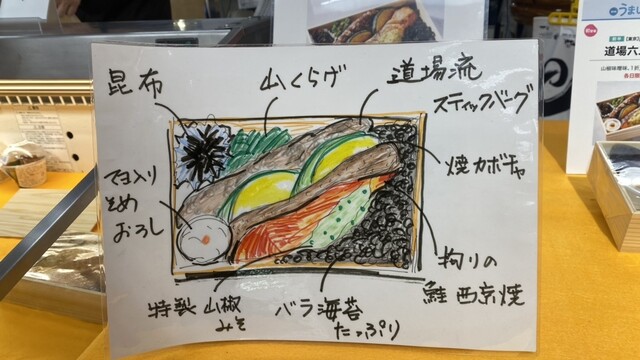 昆布
山くらげ
道場流
スティックバーグ
焼カボチャ
おろし
特製 山椒
みそ
バラ海苔
たっぷり
拘りの
鮭 西京焼
うまい
道場六